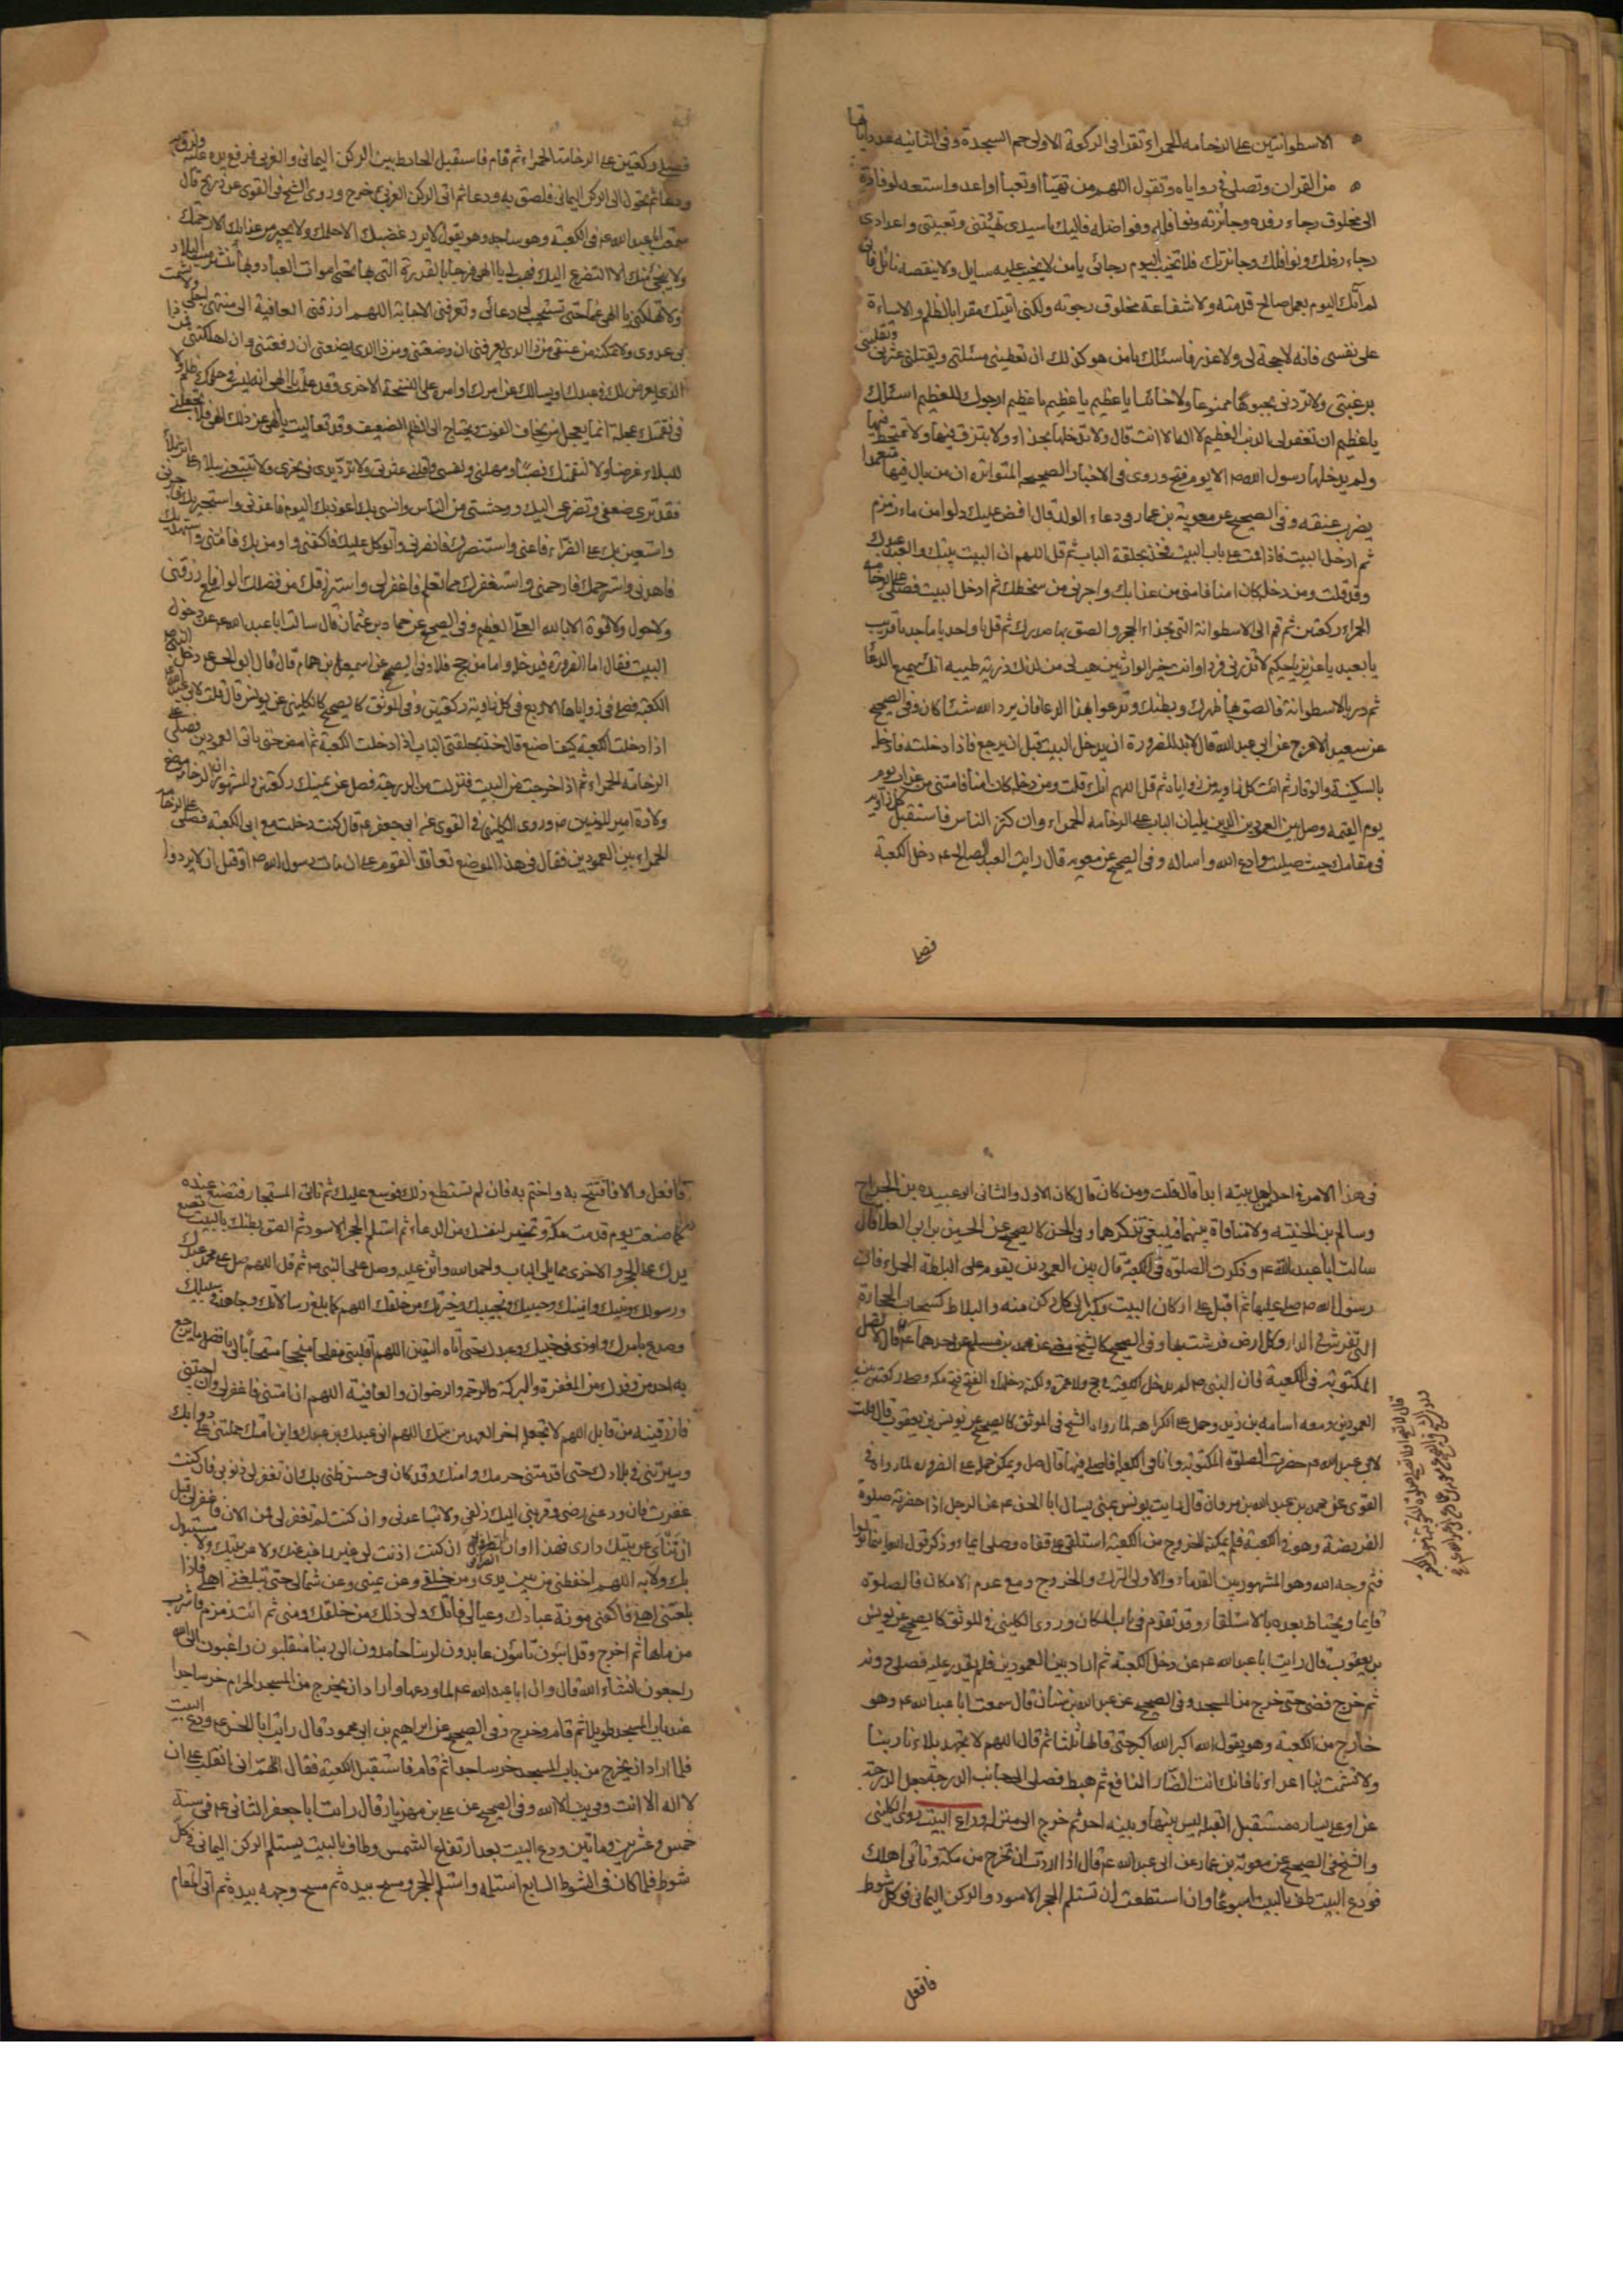 الاسطوانتين على الرخامه الحمراء تقرا فى الركعة الاولى حم السجدة وفى الثانيه عدد اياتها
من القران وتصلى فى زواياه وتقول اللهم من تهيّأ او تعبأ او اعد واستعد لوفادة
الى مخلوق رجاء رفده وجائزته ونوافله وفواضله فاليك يا سيدى تهيئتى وتعبئتى واعدادى
رجاء رفدك ونوافلك وجائزتك فلا تخيب اليوم رجائى يا من لا يخيب عليه سايل ولا ينقصه نائل فانى
لم آتك اليوم بعمل صالح قدمته ولا شفاعة مخلوق رجوته ولكنى اتيتك مقرا بالظلم والاساءة
على نفسى فانه لا حجة لى ولا عذر فاسئلك يا من هو كذلك ان تعطينى مسئلتى وتقيلنى عثرتى وتقلبنى
برغبتى ولا تردنى مجبوها ممنوعا ولا خائبا يا عظيم يا عظيم يا عظيم ارجوك للعظيم اسئلك
يا عظيم ان تغفر لى الذنب العظيم لا اله الا انت قال ولا تدخلها بحذاء ولا تبزق فيها ولا تمتخط فيها
ولم يدخلها رسول الله ص الا يوم فتح وروى فى الاخبار الصحيحه المتواتره ان من بال فيها متعمدا
يضرب عنقه وفى الصحيح عن معوية بن عمار فى دعاء الولد قال افض عليك دلوا من ماء زمزم
ثم ادخل البيت فاذا قمت على باب البيت فخذ بحلقة الباب ثم قل اللهم ان البيت بيتك والعبد عبدك
وقد قلت ومن دخله كان امنا فامنى من عذابك واجرنى من سخطك ثم ادخل البيت فصل على الرخامه
الحمراء ركعتين ثم قم الى الاسطوانة التى بحذاء الحجر والصق بها صدرك ثم قل يا واحد يا ماجد يا قريب
يا بعيد يا عزيز يا حكيم لا تذرنى فردا وانت خير الوارثين هب لى من لدنك ذرية طيبه انك سميع الدعا
ثم در بالاسطوانة فالصق بها ظهرك وبطنك وتدعوا بهذا الدعا فان يرد الله شئا كان وفى الصحيح
عن سعيد الاعرج عن ابى عبد الله قال لابد للضرورة ان يدخل البيت قبل ان يرجع فاذا دخلته فادخله
بالسكينة والوقار ثم ائت كل زاوية من زواياه ثم قل اللهم انك قلت ومن دخله كان امنا فامنى من عذاب يوم
يوم القيمة وصل بين العمودين الذين يليان الباب على الرخامه الحمراء وان كثر الناس فاستقبل كل زاويه
فى مقامك حيث صليت وادع الله واساله وفى الصحيح عن معويه قال رايت العبد الصالح ع دخل الكعبة
فصلى
فصلى ركعتين على الرخامة الحمراء ثم قام فاستقبل الحايط بين الركن اليمانى والغربى فرفع يده عليه ولزق به
ودعا ثم تحول الى الركن اليمانى فلصق به ودعا ثم اتى الركن الغربى ثم خرج وروى الشيخ فى القوى عن ذريح قال
سمعت ابا عبد الله ع فى الكعبة وهو ساجد وهو يقول لا يرد غضبك الا حلمك ولا يجير من عذابك الا رحمتك
ولا ينجى منك الا التضرع اليك فهب لى يا الهى فرجا بالقدرة التى بها تحيى اموات العباد وبها تنشر ميت البلاد
ولا تهلكنى يا الهى غما حتى تستجيب لى دعائى وتعرفنى الاجابة اللهم ارزقنى العافية الى منتهى اجلى ولا تشمت
بى عدوى ولا تمكنه من عنقى من ذا الذى يرفعنى ان وضعتنى ومن ذا الذى يضعنى ان رفعتنى وان اهلكتنى فمن ذا
الذى يعرض لك فى عبدك او يسالك عن امرك وقد علمت يا الهى انه ليس فى حكمك ظلم ولا
فى نقمتك عجلة انما يعجل من يخاف الفوت ويحتاج الى الظلم الضعيف وقد تعاليت يا الهى عن ذلك الهى فلا تجعلنى
للبلاء غرضا ولا لنقمتك نصبا ومهلنى ونفسنى واقلنى عثرتى ولا ترد يدى فى نحرى ولا تتبعنى ببلاء على اثر بلاء
فقد ترى ضعفى وتضرعى اليك ووحشتى من الناس وانسى بك اعوذ بك اليوم فاعذنى واستجير بك فاجرنى
واستعين بك على الضراء فاعنى واستنصرك فانصرنى واتوكل عليك فاكفنى واومن بك فامنى واستهديك
فاهدنى واسترحمك فارحمنى واستغفرك مما تعلم فاغفر لى واسترزقك من فضلك الواسع فارزقنى
ولا حول ولا قوة الا بالله العلى العظيم وفى الصحيح عن حماد بن عثمان قال سالت ابا عبد الله ع عن دخول
البيت فقال اما الضرورة فيدخله واما من حج فلا وفى الصحيح عن اسمعيل بن همام قال قال ابو الحسن ع دخل النبى ص
الكعبة فصلى فى زواياها الاربع فى كل زاوية ركعتين وفى الموثق كالصحيح كالكلينى عن يونس قال قلت لابى عبد الله
اذا دخلت الكعبة كيف اصنع قال خذ بحلقتى الباب اذا دخلت الكعبة ثم امض حتى تاتى العمودين فصل على
الرخامة الحمراء ثم اذا خرجت من البيت فنزلت من الدرجة فصل عن يمينك ركعتين والمشهور ان الرخامه موضع
ولادة امير المومنين ص وروى الكلينى فى القوى عن ابى جعفر ع قال كنت دخلت مع ابى الكعبة فصلى على الرخامه
الحمراء بين العمودين فقال فى هذا الموضع تعاقد القوم على ان مات رسول الله ص او قتل ان لا يردوا
فى هذا الامر فى احد من اهل بيته ابدا قال قلت ومن كان قال كان الاول والثانى وابو عبيده بن الجراح
وسالم بن الحبيبه ولا منافاة بينهما فينبغى تذكرهما وفى الحسن كالصحيح عن الحسين بن ابى العلا قال
سالت ابا عبد الله ع وذكرت الصلوة فى الكعبة قال بين العمودين يقوم على البلاطة الحمراء فان
رسول الله ص صلى عليها ثم اقبل على اركان البيت وكبر الى كل ركن منه والبلاط كسحاب الحجارة
التى تفرش فى الدار وكل ارض فرشت بها وفى الصحيح كالشيخ عن محمد بن مسلم عن احدهما ع قال لا تصل
المكتوبة فى الكعبة فان النبى ص لم يدخل الكعبة فى حج ولا عمرة ولكنه دخلها فى الفتح فتح مكه وصلى ركعتين بين
العمودين ومعه اسامه بن زيد وحمل على الكراهه لما رواه الشيخ فى الموثق كالصحيح عن يونس بن يعقوب قال قلت
لابى عبد الله ع حضرت الصلوة المكتوبة وانا فى الكعبة افاصلى فيها قال صل ويمكن حمله على الضروره لما رواه فى
القوى عن محمد بن عبد الله بن مروان قال رايت يونس بمنى يسال ابا الحسن ع عن الرجل اذا حضرته صلوة
الفريضة وهو فى الكعبة فلم يمكنه الخروج من الكعبة استلقى على قفاه وصلى ايماء وذكر قول الله اينما تولوا
فثم وجه الله وهو المشهور بين القدماء والاولى الترك والخروج ومع عدم الامكان فالصلوة
قايما ويحتاط بعده بالاستلقاء وقد تقدم فى باب المكان وروى الكلينى فى الموثق كالصحيح عن يونس
بن يعقوب قال رايت ابا عبد الله ع دخل الكعبة ثم اراد بين العمودين فلم يقدر عليه فصلى دونه
ثم خرج فمضى حتى خرج من المسجد وفى الصحيح عن عبد الله بن سنان قال سمعت ابا عبد الله ع وهو
خارج من الكعبة وهو يقول الله اكبر الله اكبر حتى قالها ثلثا ثم قال اللهم لا تجهد بلاءنا ربنا
ولا تشمت بنا اعداءنا فانك انت الضار النافع ثم هبط فصلى الى جانب الدرجة جعل الدرجة
عن يساره مستقبل القبله ليس بينها وبينه احد ثم خرج الى منزله وداع البيت روى الكلينى
والشيخ فى الصحيح عن معوية بن عمار عن ابى عبد الله ع قال اذا اردت ان تخرج من مكة وتاتى اهلك
فودع البيت طف بالبيت اسبوعا وان استطعت ان تستلم الحجر الاسود والركن اليمانى فى كل شوط
فافعل
فافعل والا فافتتح به واختم به فان لم تستطع ذلك فموسع عليك ثم تاتى المستجار فتصنع عنده
كما صنعت يوم قدمت مكة وتخير لنفسك من الدعاء ثم استلم الحجر الاسود ثم الصق بطنك بالبيت تضع
يدك على الحجر والاخرى مما يلى الباب واحمد الله واثن عليه وصل على النبى ص ثم قل اللهم صل على محمد عبدك
ورسولك ونبيك وامينك وحبيبك ونجيبك وخيرتك من خلقك اللهم كما بلغ رسالاتك وجاهد فى سبيلك
وصدع بامرك واوذى فى جنبك وعبدك حتى اتاه اليقين اللهم اقلبنى مفلحا منجحا مستجابا لى بافضل ما يرجع
به احد من وفدك من المغفرة والبركة والرحمة والرضوان والعافية اللهم ان امتنى فاغفر لى وان احيتنى
فارزقنيه من قابل اللهم لا تجعله اخر العهد من بيتك اللهم انى عبدك بن عبدك وابن امتك حملتنى على دوابك
وسيرتنى فى بلادك حتى اقدمتنى حرمك وامنك وقد كان فى حسن ظنى بك ان تغفر لى ذنوبى فان كنت
غفرت فازدد عنى رضى وقربنى اليك زلفى ولا تباعدنى وان كنت لم تغفر لى فمن الان فاغفر لى قبل
ان تنأى عن بيتك دارى فهذا اوان انصرافى ان كنت اذنت لى غير راغب عنك ولا عن بيتك ولا مستبدل
بك ولا به اللهم احفظنى من بين يدى ومن خلفى وعن يمينى وعن شمالى حتى تبلغنى اهلى فاذا
بلغتنى اهلى فاكفنى مونة عبادك وعيالى فانك ولى ذلك من خلقك ومنى ثم ائت زمزم فاشرب
من ماءها ثم اخرج وقل ائبون تائبون عابدون لربنا حامدون الى ربنا منقلبون راغبون الى الله
راجعون انشاء الله قال وان ابا عبد الله ع لما ودعها واراد ان يخرج من المسجد الحرام خر ساجدا
عند باب المسجد طويلا ثم قام وخرج وفى الصحيح عن ابراهيم بن ابى محمود قال رايت ابا الحسن ع ودع البيت
فلما اراد ان يخرج من باب المسجد خر ساجدا ثم قام فاستقبل الكعبة فقال اللهم انى انقلب على ان
لا اله الا انت وفى الصحيح عن على بن مهزيار قال رايت ابا جعفر الثانى ع فى سنة
خمس وعشرين وماتين ودع البيت بعد ارتفاع الشمس وطاف بالبيت يستلم الركن اليمانى فى كل
شوط فلما كان فى الشوط السابع استلمه واستلم الحجر ومسح بيده ثم مسح وجهه بيده ثم اتى المقام